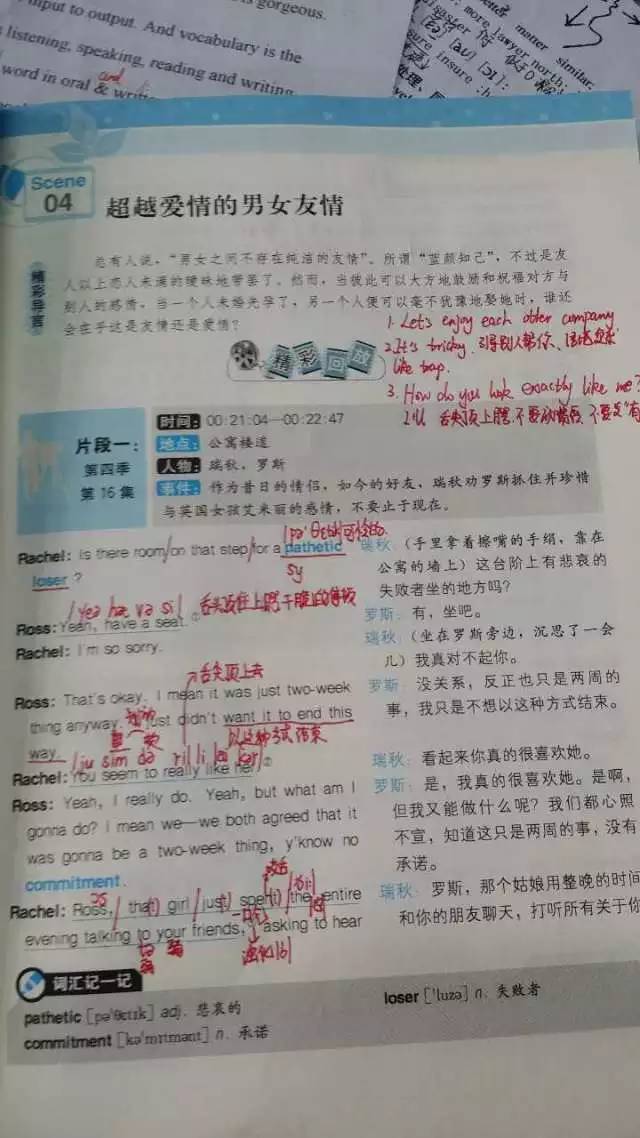 input to output. And vocabulary is the
is gorgeous.
listening, speaking, reading and writing
and
word in oral &
more lawyer north:
matter similar.
sure insure
Scene
04
超越爱情的男女友情
精彩导言
总有人说，“男女之间不存在纯洁的友情”。所谓“蓝颜知己”，不过是友
人以上恋人未满的暧昧地带罢了。然而，当彼此可以大方地鼓励和祝福对方与
别人的感情，当一个人未婚先孕了，另一个人便可以毫不犹豫地娶她时，谁还
会在乎这是友情还是爱情？
精彩回放
1. Let's enjoy each other company
2. It's tricky.
like trap.
3. How do you look exactly like me?
舌尖顶上腭
片段一：
第四季
第 16 集
时间： 00:21:04—00:22:47
地点： 公寓楼道
人物： 瑞秋、罗斯
事件： 作为昔日的情侣，如今的好友，瑞秋劝罗斯抓住并珍惜
与英国女孩艾米丽的感情，不要止于现在。
可怜的
Rachel: Is there room on that step for a pathetic
sy
loser ?
Ross: Yeah, have a seat. ①
Rachel: I'm so sorry.
舌尖顶上去
Ross: That's okay. I mean it was just two-week
thing anyway. I just didn't want it to end this
way.
以这种方式结束
Rachel: You seem to really like her. ②
Ross: Yeah, I really do. Yeah, but what am I
gonna do? I mean we—we both agreed that it
was gonna be a two-week thing, y'know no
commitment.
Rachel: Ross, that girl just spent the entire
evening talking to your friends, asking to hear
瑞秋：（手里拿着擦嘴的手绢，靠在
公寓的墙上）这台阶上有悲哀的
失败者坐的地方吗？
罗斯：有，坐吧。
瑞秋：（坐在罗斯旁边，沉思了一会
儿）我真对不起你。
罗斯：没关系，反正也只是两周的
事，我只是不想以这种方式结束。
瑞秋：看起来你真的很喜欢她。
罗斯：是，我真的很喜欢她。是啊，
但我又能做什么呢？我们都心照
不宣，知道这只是两周的事，没有
承诺。
瑞秋：罗斯，那个姑娘用整晚的时间
和你的朋友聊天，打听所有关于你
词汇记一记
pathetic [pə'θɛtɪk] adj. 悲哀的
commitment [kə'mɪtmənt] n. 承诺
loser ['luzə] n. 失败者